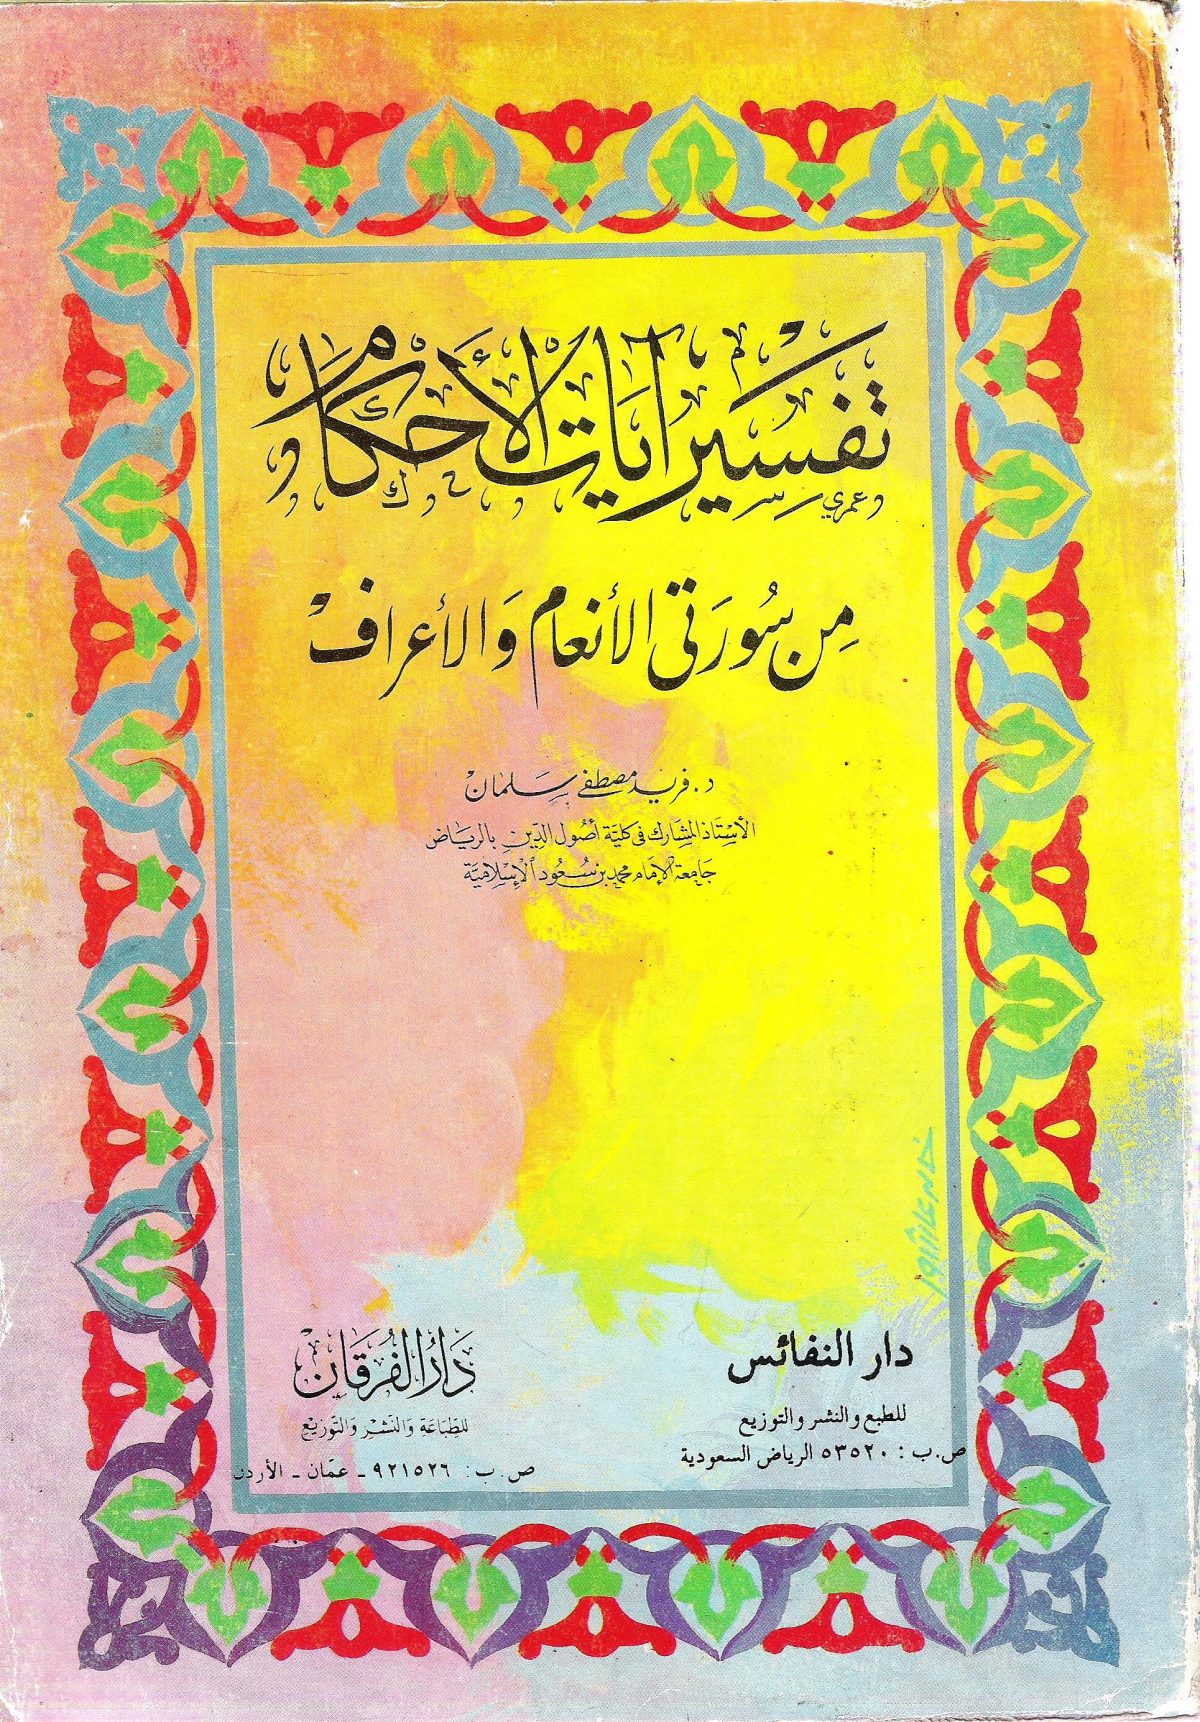 تفسير آيات الأحكام
من سورتي الأنعام والأعراف
د. فريد مصطفى سلمان
الأستاذ المشارك في كلية أصول الدين بالرياض
جامعة الإمام محمد بن سعود الإسلامية
دار النفائس
للطبع والنشر والتوزيع
ص.ب : ٥٣٥٢٠ الرياض السعودية
دار الفرقان
للطباعة والنشر والتوزيع
ص.ب : ٩٢١٥٢٦ - عمّان - الأردن